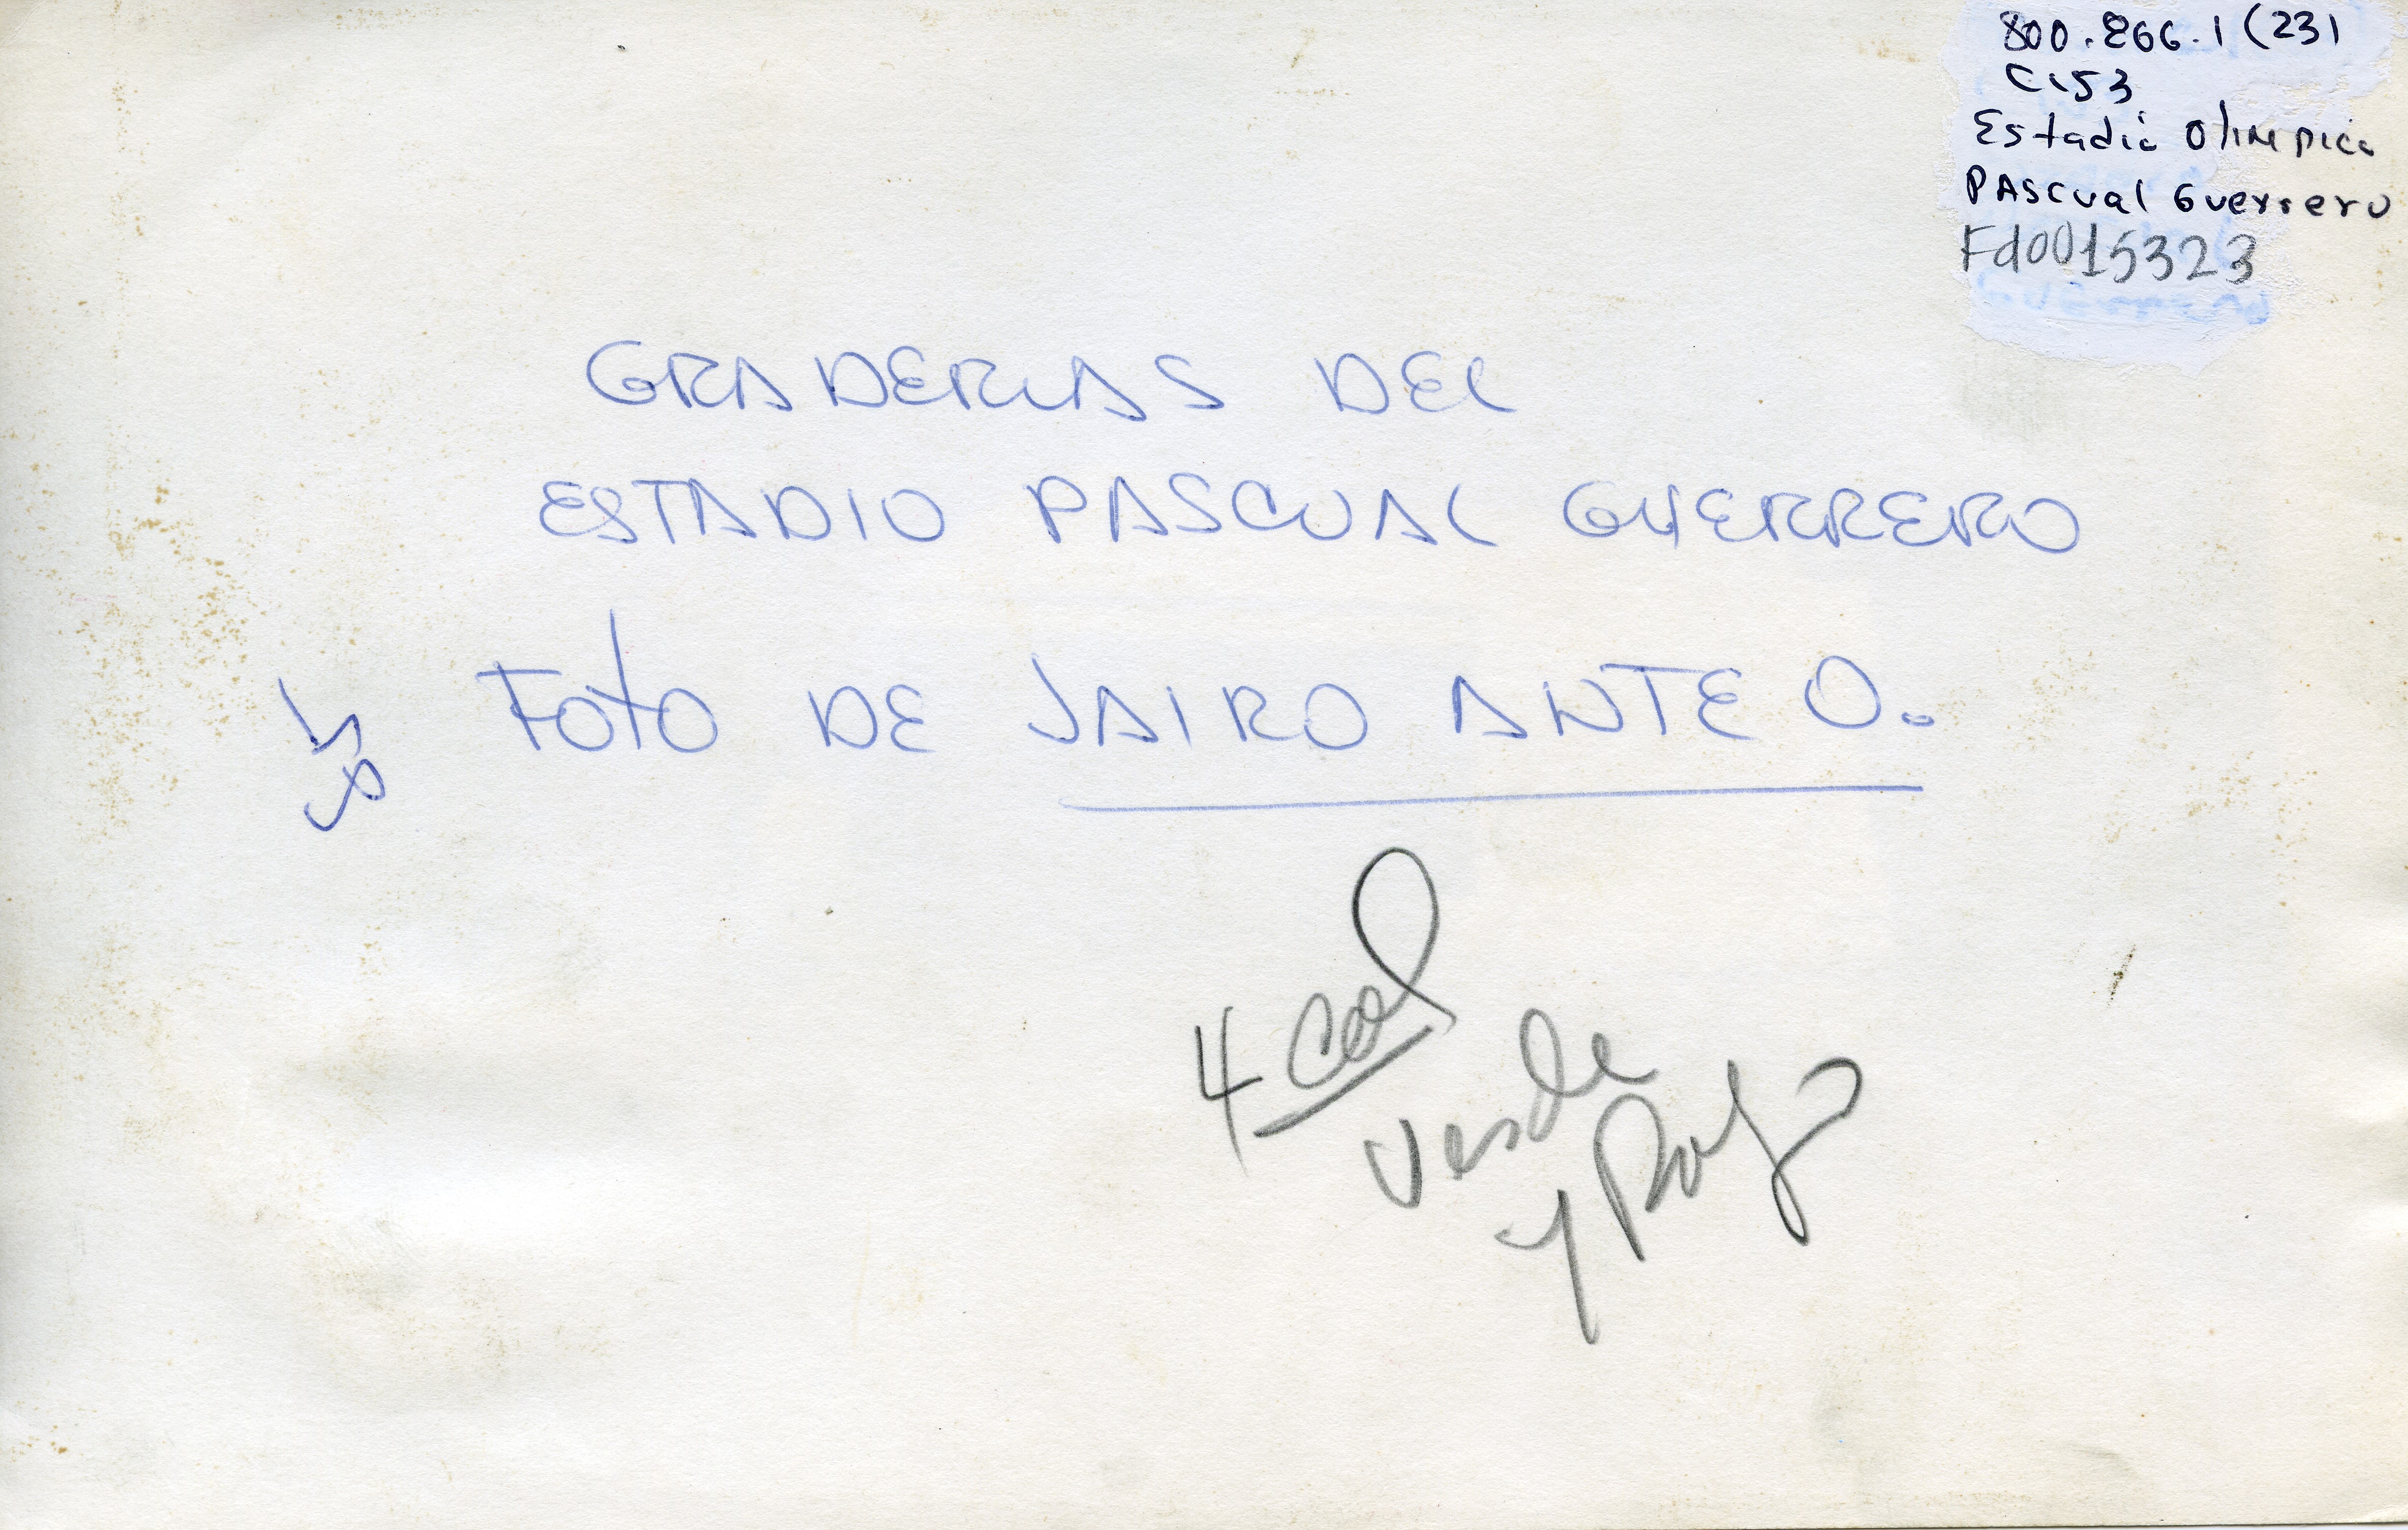 800.866.1 (23)
C153
Estadio Olimpico
PAscual Guerrero
Fd0015323
GRADERIAS DEL
ESTADIO PASCUAL GUERRERO
FOTO DE JAIRO ANTE O.
4 Col
Verde
y Rojo